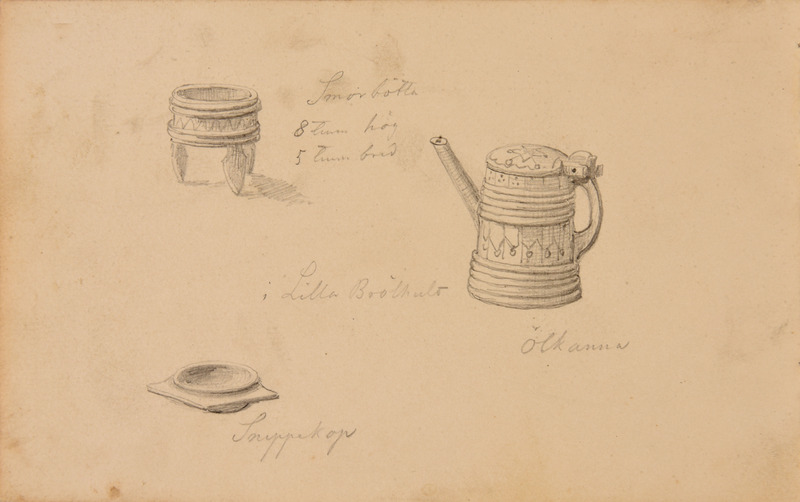 Smörbötta
8 tum hög
5 tum bred
i Lilla Brölhult
Ölkanna
Snippekop